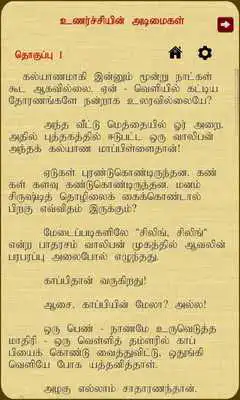 உணர்ச்சியின் அடிமைகள்
தொகுப்பு 1
கல்யாணமாகி இன்னும் மூன்று நாட்கள்
கூட ஆகவில்லை. ஏன் - வெளியில் கட்டிய
தோரணங்களே நன்றாக உலரவில்லையே?
அந்த வீட்டு மெத்தையில் ஓர் அறை.
அதில் புத்தகத்தில் ஈடுபட்ட ஒரு வாலிபன்
அந்தக் கல்யாண மாப்பிள்ளைதான்!
ஏடுகள் புரண்டுகொண்டிருந்தன. கண்
கள் களவு கண்டுகொண்டிருந்தன. மனம்
சிருஷ்டித் தொழிலைக் கைக்கொண்டால்
பிறகு எவ்விதம் இருக்கும்?
மேடைப்படிகளிலே "சிலிங், சிலிங்"
என்ற பாதரசம் வாலிபன் முகத்தில் ஆவலின்
பரபரப்பு அலைபோல் எழுந்தது.
காப்பிதான் வருகிறது!
ஆசை. காப்பியின் மேலா? அல்ல!
ஒரு பெண் - நாணமே உருவெடுத்த
மாதிரி - ஒரு வெள்ளித் தம்ளரில் காப்
பியைக் கொண்டு வைத்துவிட்டு, ஒதுங்கி
வெளியே போக யத்தனித்தாள்.
அழகு எல்லாம் சாதாரணந்தான்.